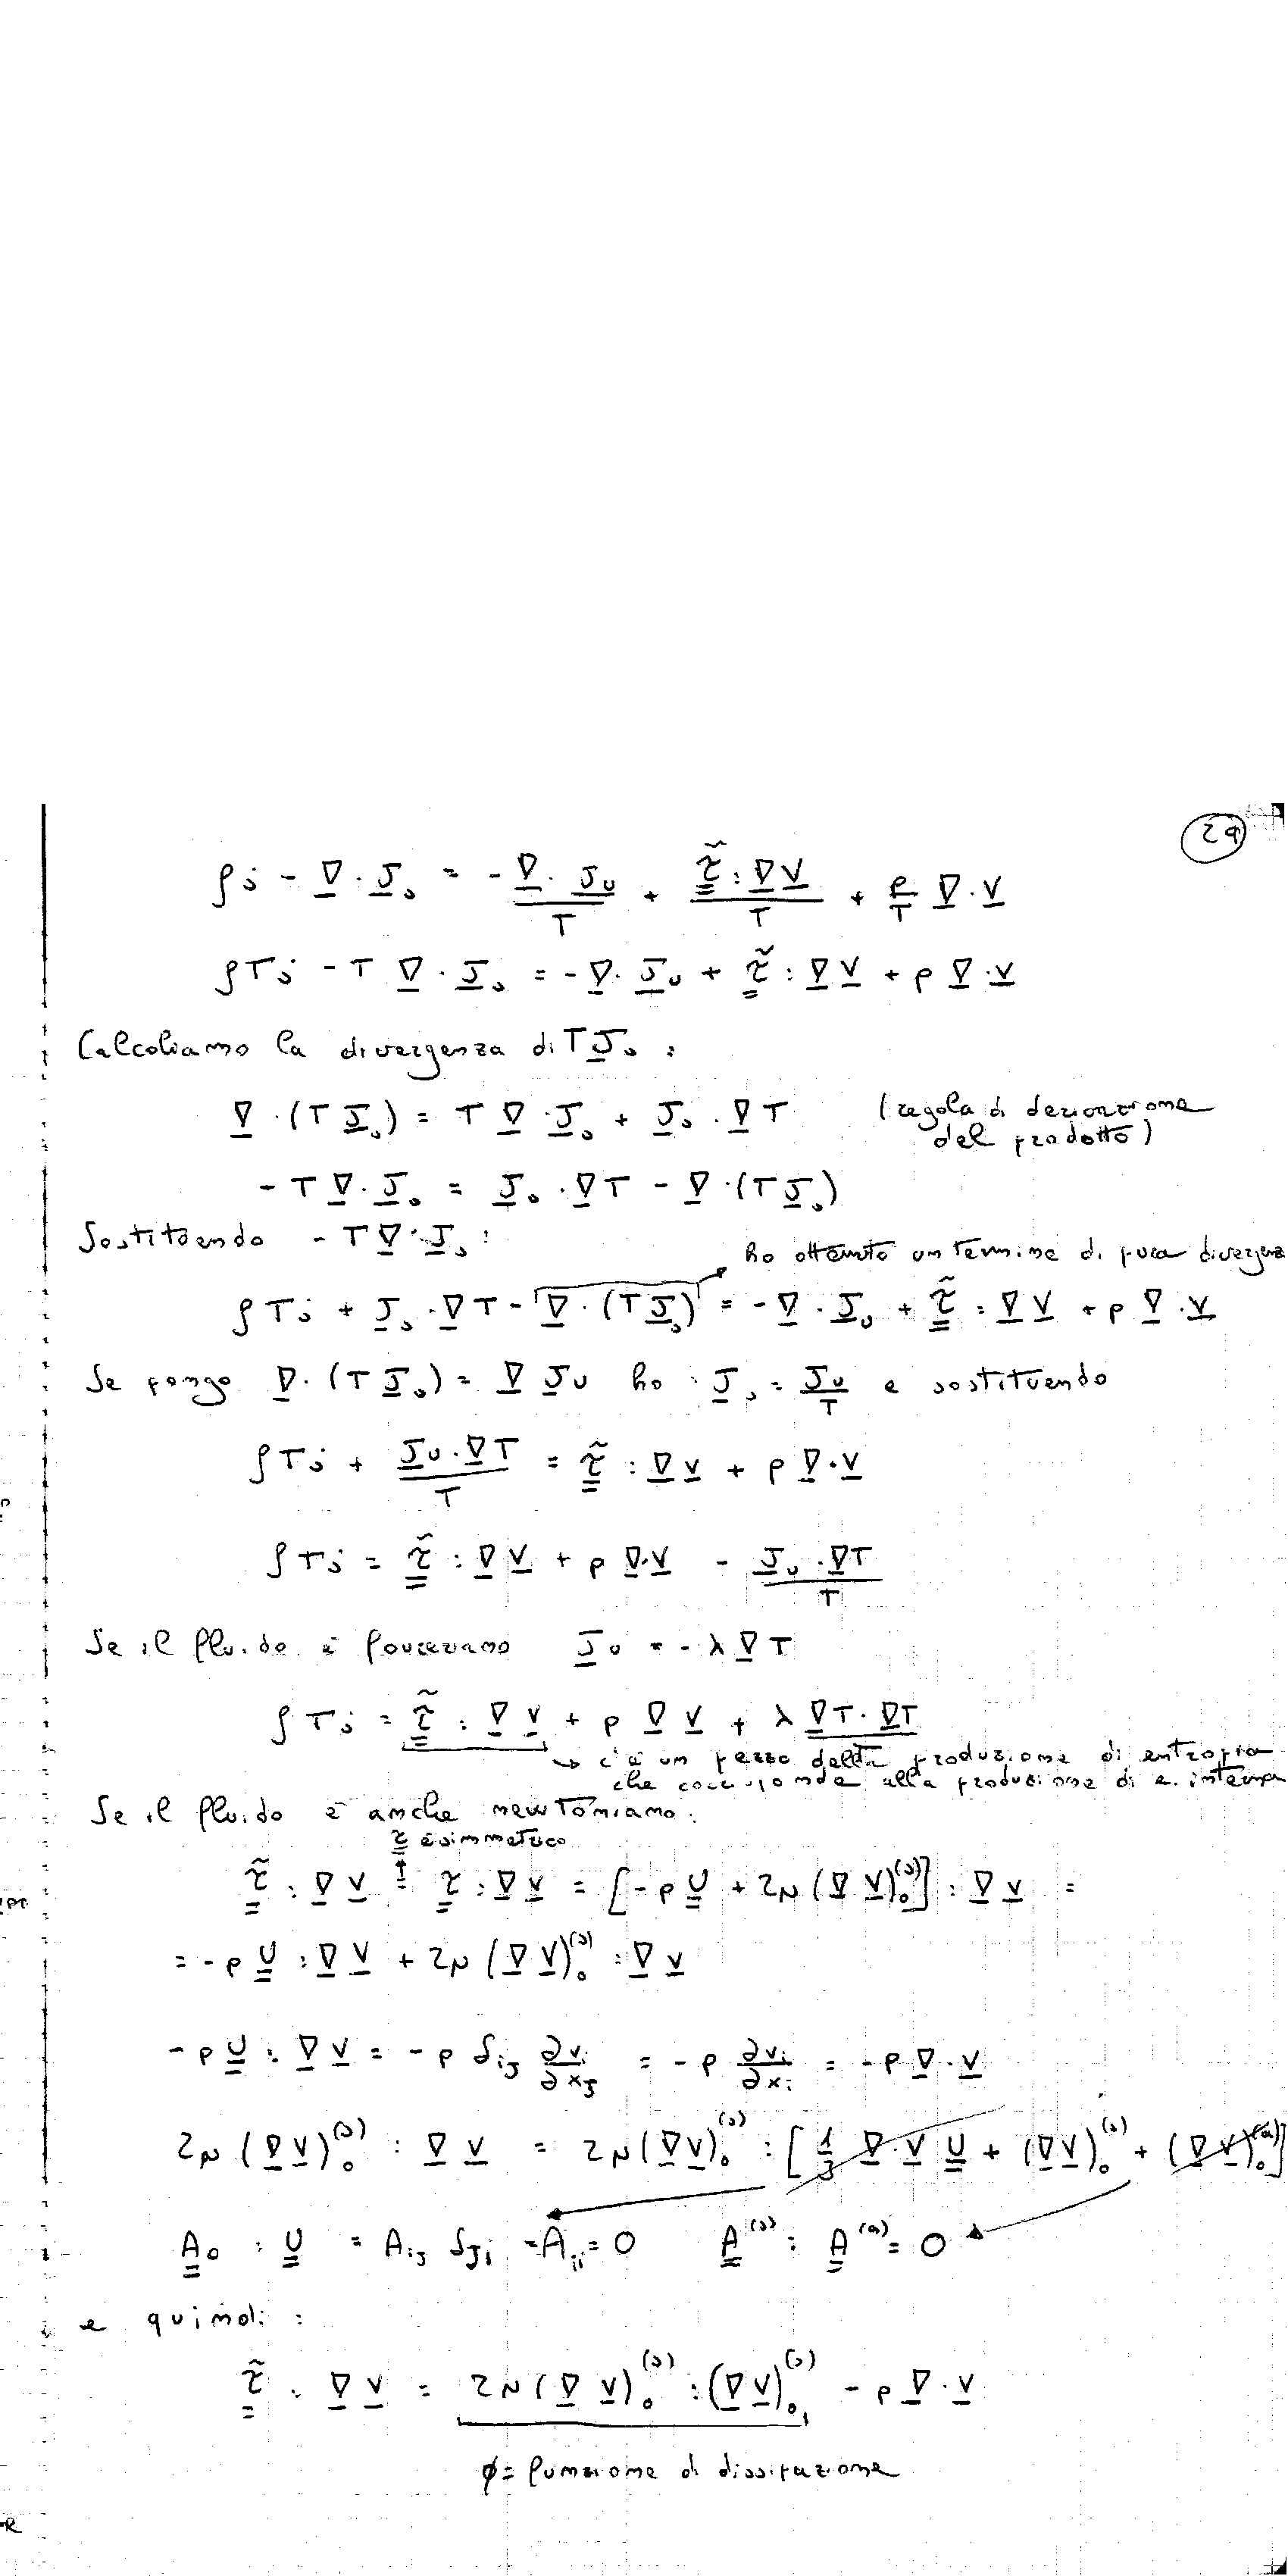 29
ρṡ - ∇·J_s = - ∇·J_U/T + τ̃:∇v/T + p/T ∇·v
ρTṡ - T ∇·J_s = - ∇·J_U + τ̃:∇v + p ∇·v
Calcoliamo la divergenza di T J_s :
∇·(T J_s) = T ∇·J_s + J_s·∇T (regola di derivazione
del prodotto)
- T ∇·J_s = J_s·∇T - ∇·(T J_s)
Sostituendo - T ∇·J_s :
ho ottenuto un termine di pura divergenza
ρTṡ + J_s·∇T - ∇·(T J_s) = - ∇·J_U + τ̃:∇v + p ∇·v
Se pongo ∇·(T J_s) = ∇ J_U ho : J_s = J_U/T e sostituendo
ρTṡ + J_U·∇T/T = τ̃:∇v + p ∇·v
ρTṡ = τ̃:∇v + p ∇·v - J_U·∇T/T
Se il fluido è fourierano J_U = - λ ∇T
ρTṡ = τ̃:∇v + p ∇ v + λ ∇T·∇T
→ c'è un pezzo della produzione di entropia
che corrisponde alla produzione di e. interna
Se il fluido è anche newtoniano :
τ è simmetrico
τ̃:∇v = τ:∇v = [-p U + 2μ (∇v)₀^(s)] : ∇v =
= - p U : ∇v + 2μ (∇v)₀^(s) : ∇v
- p U : ∇v = - p δij ∂vi/∂xj = - p ∂vi/∂xi = - p ∇·v
2μ (∇v)₀^(s) : ∇v = 2μ (∇v)₀^(s) : [1/3 ∇·v U + (∇v)₀^(s) + (∇v)₀^(a)]
A₀ : U = Aij δji = Aii = 0 A^(s) : A^(a) = 0
e quindi :
τ̃ : ∇v = 2μ (∇v)₀^(s) : (∇v)₀^(s) - p ∇·v
ϕ = funzione di dissipazione